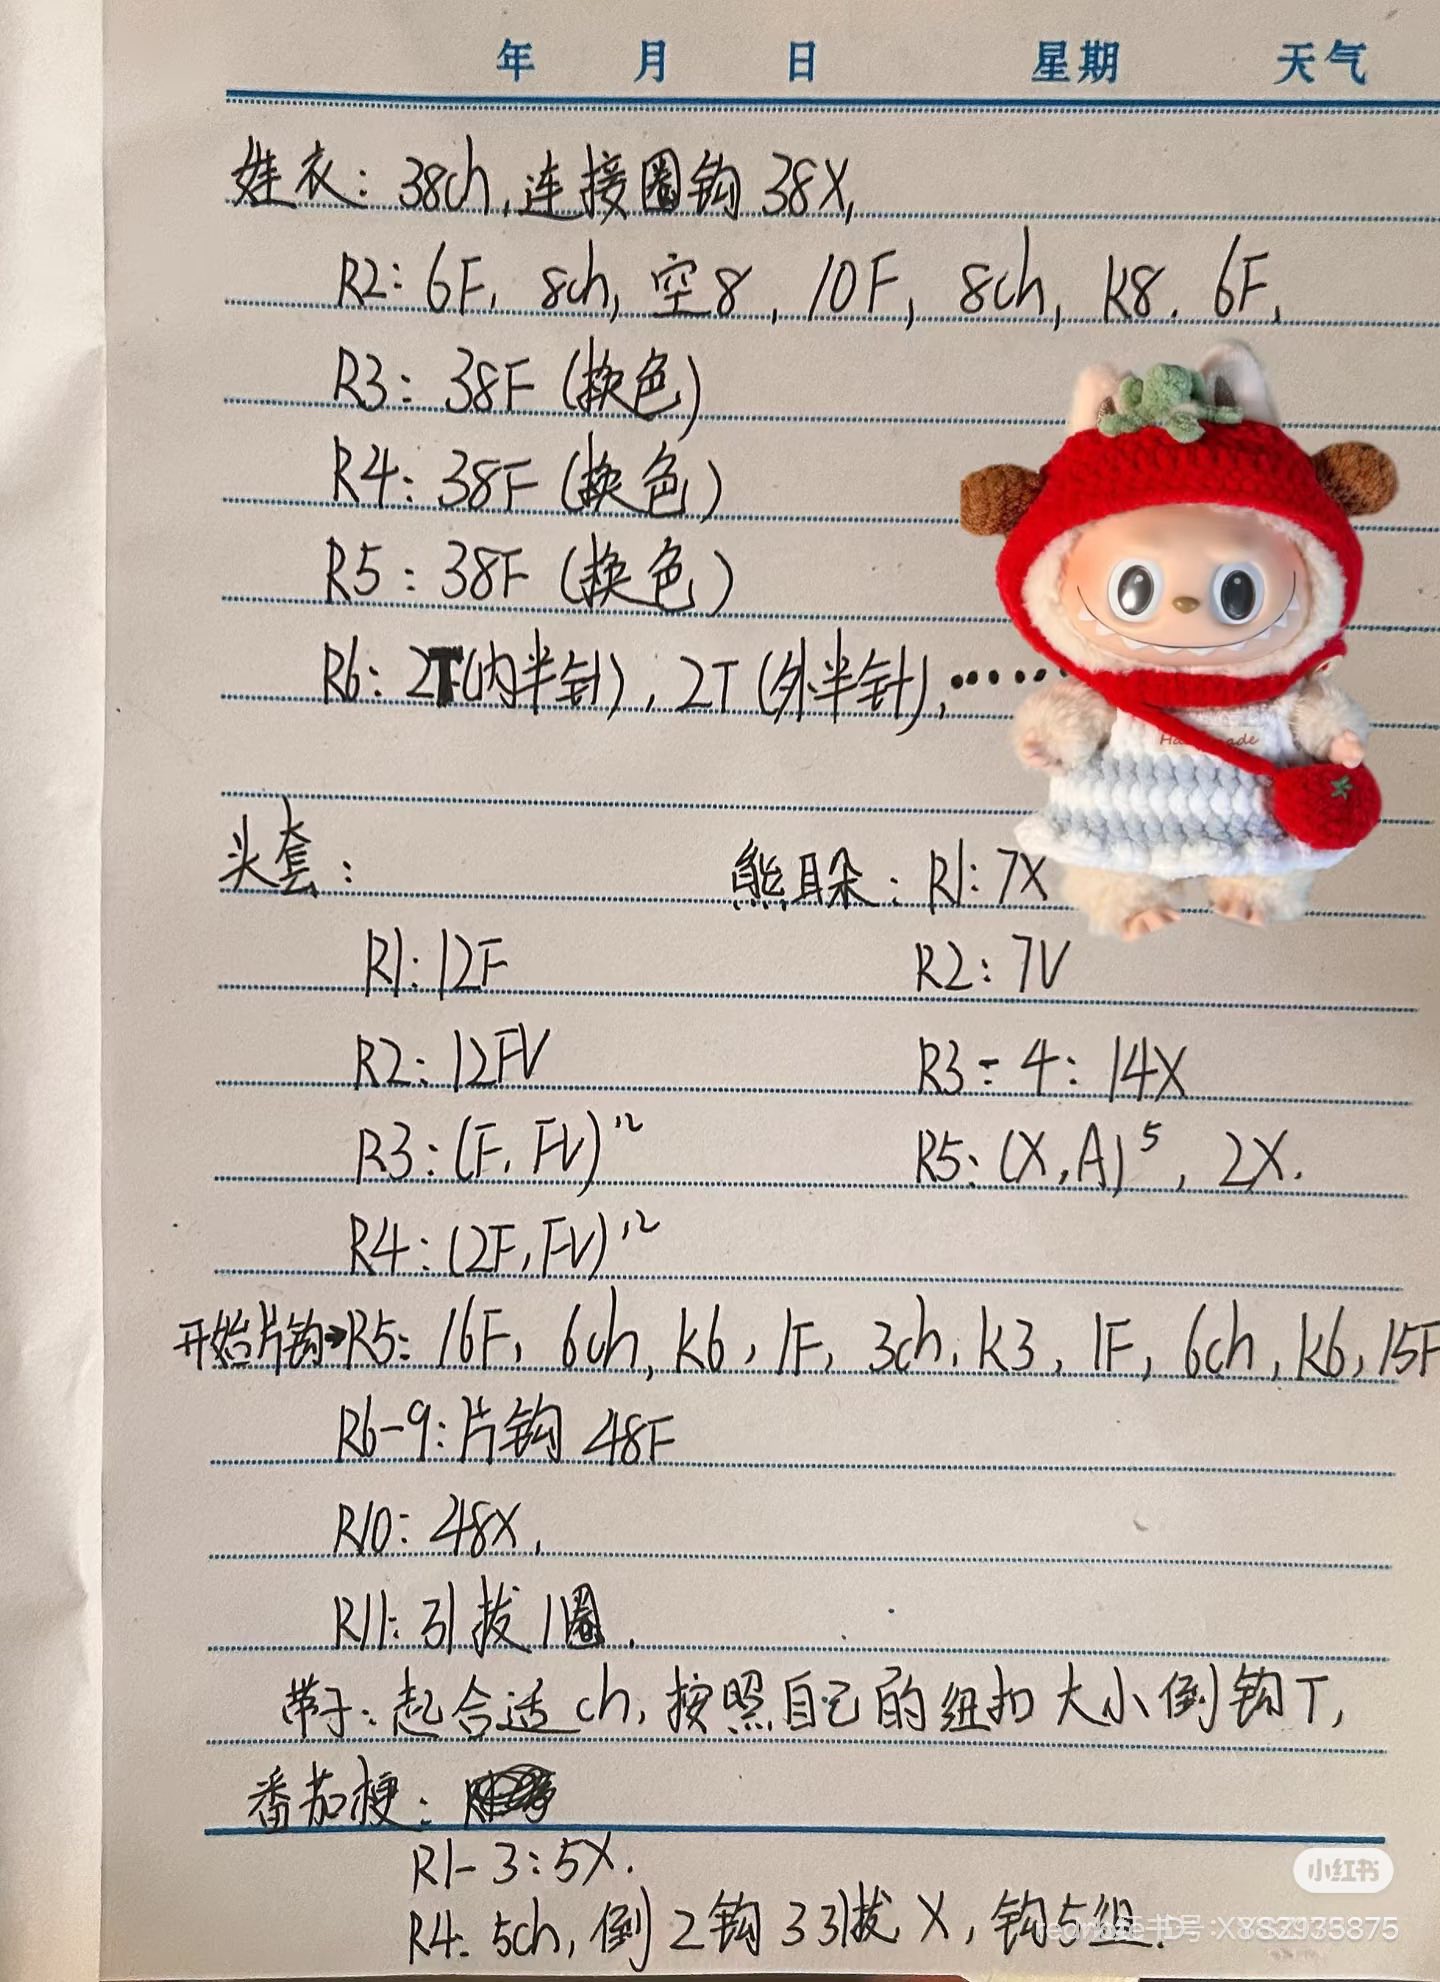 年 月 日 星期 天气
娃衣：38ch，连接圈钩38X，
R2：6F，8ch，空8，10F，8ch，K8，6F，
R3：38F（换色）
R4：38F（换色）
R5：38F（换色）
R6：2T（内半针），2T（外半针），······
Handmade
头套：
R1：12F
R2：12FV
R3：(F，FV)¹²
R4：(2F，FV)¹²
熊耳朵：R1：7X
R2：7V
R3-4：14X
R5：(X，A)⁵，2X.
开始片钩→R5：16F，6ch，K6，1F，3ch，K3，1F，6ch，K6，15F
R6-9：片钩48F
R10：48X，
R11：引拔1圈.
带子：起合适ch，按照自己的纽扣大小倒钩T，
番茄梗：
R1-3：5X.
R4：5ch，倒2钩3引拔X，钩5组.
小红书